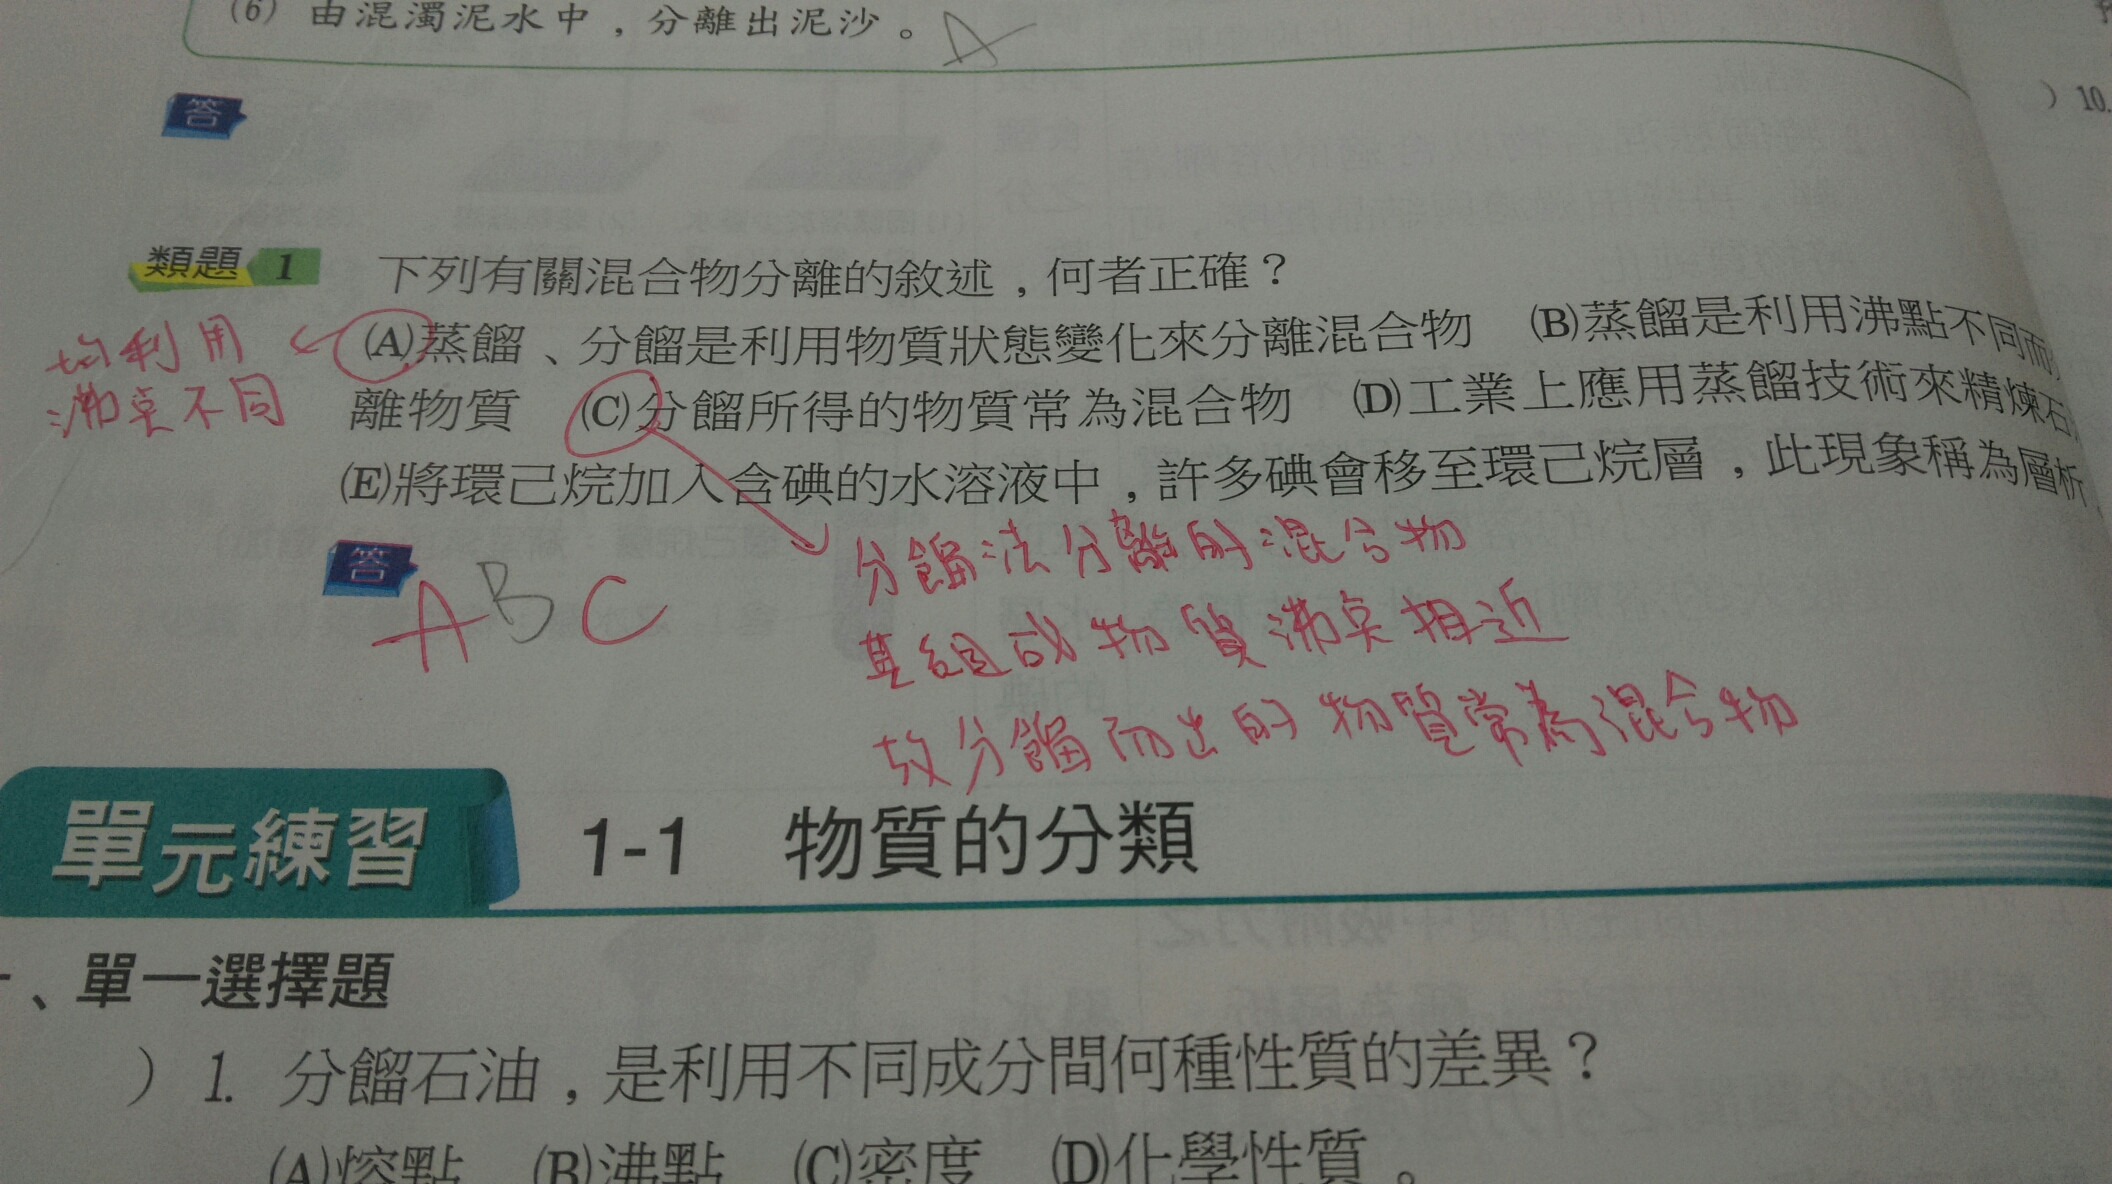 (6) 由混濁泥水中，分離出泥沙。 A
) 10.
答
類題 1 下列有關混合物分離的敘述，何者正確？
(A)蒸餾、分餾是利用物質狀態變化來分離混合物 (B)蒸餾是利用沸點不同而
離物質 (C)分餾所得的物質常為混合物 (D)工業上應用蒸餾技術來精煉石
(E)將環己烷加入含碘的水溶液中，許多碘會移至環己烷層，此現象稱為層析
均利用
沸點不同
答 A B C
分餾法分離的混合物
其組成物質沸點相近
故分餾而出的物質常為混合物
單元練習 1-1 物質的分類
、單一選擇題
) 1. 分餾石油，是利用不同成分間何種性質的差異？
(A)熔點 (B)沸點 (C)密度 (D)化學性質。